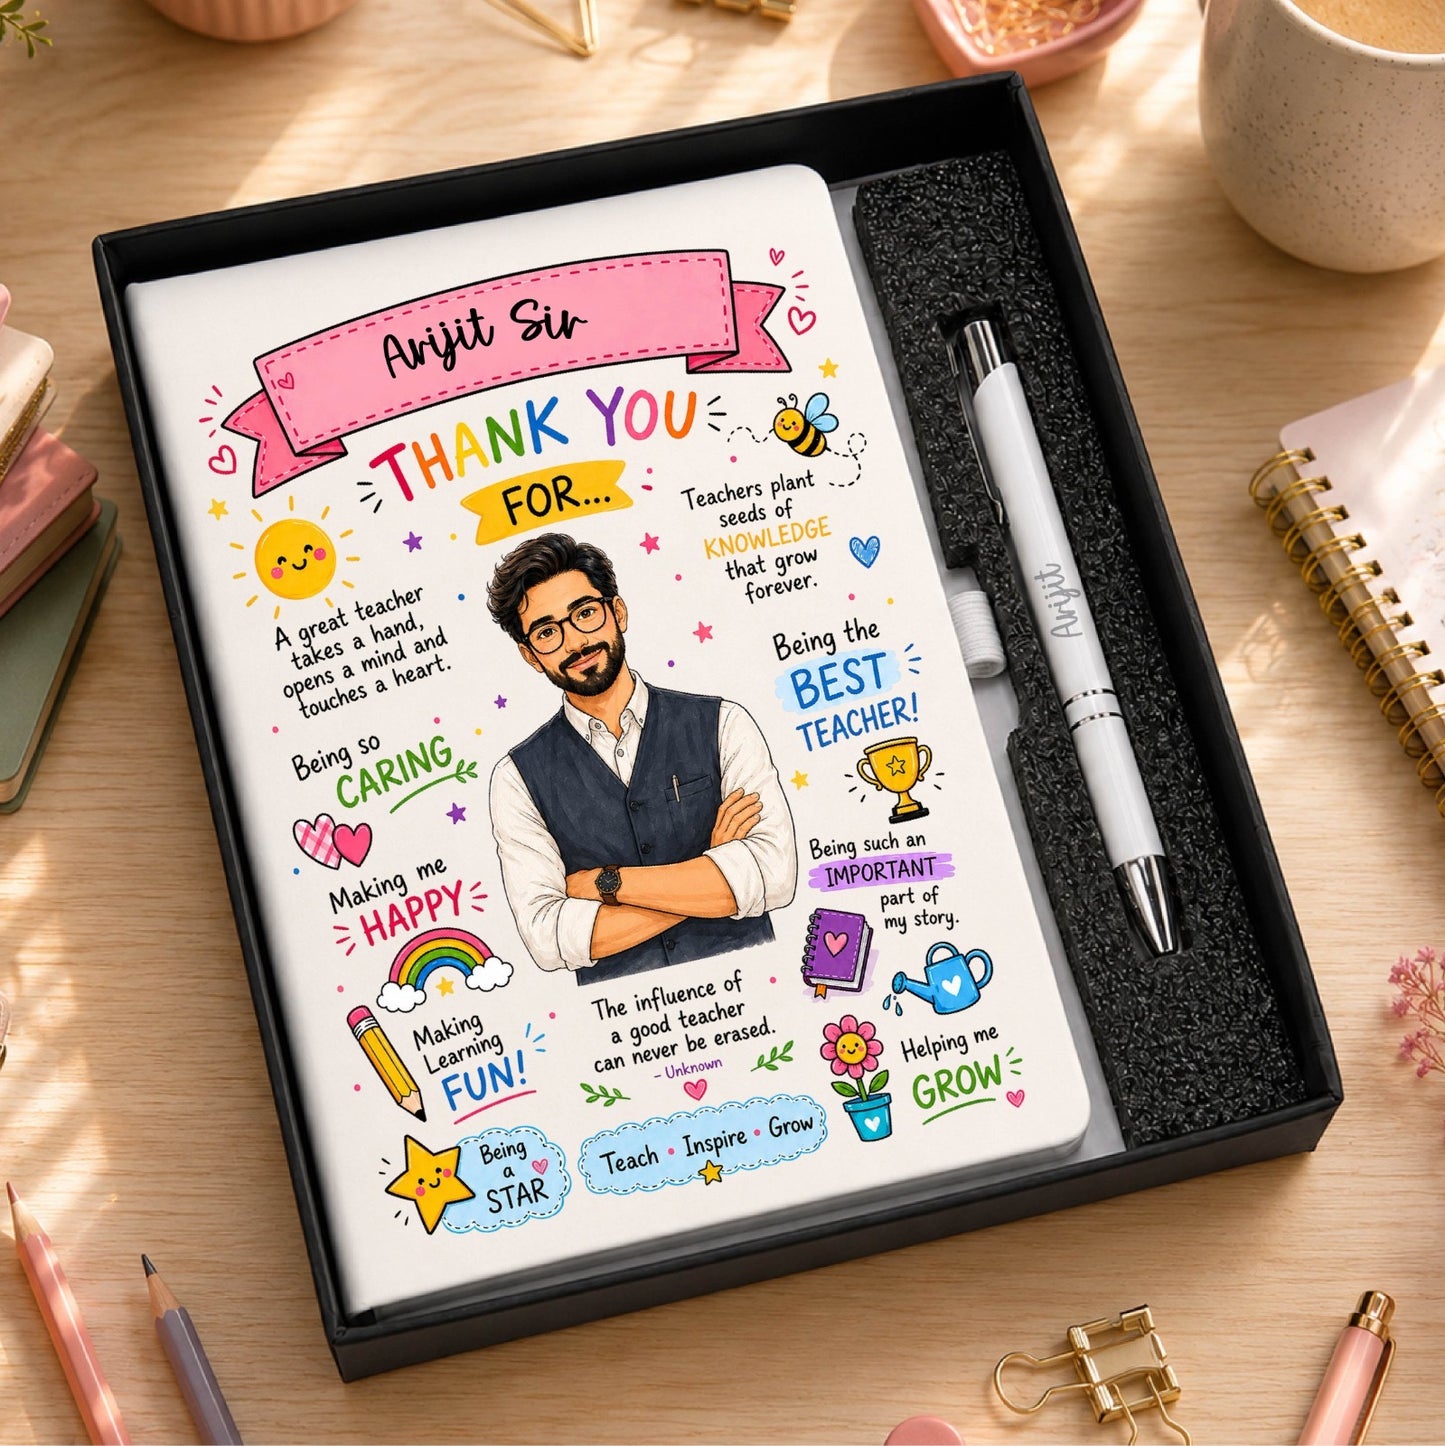 Arijit Sir
THANK YOU
FOR...
A great teacher
takes a hand,
opens a mind and
touches a heart.
Teachers plant
seeds of
KNOWLEDGE
that grow
forever.
Being so
CARING
Being the
BEST
TEACHER!
Making me
HAPPY
Being such an
IMPORTANT
part of
my story.
Making
Learning
FUN!
The influence of
a good teacher
can never be erased.
- Unknown
Helping me
GROW
Being
a
STAR
Teach • Inspire • Grow
Arijit